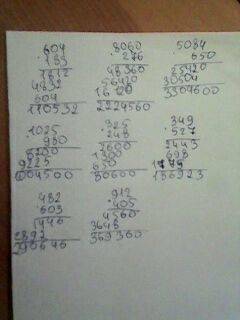 604 8060 5084
·183 ·276 650
1812 48360 25420
4832 56420 30504
604 16120 3304600
110532 2224560
1025 ·325 ·349
980 ·248 ·527
8200 2600 2443
9225 1300 698
1004500 650
80600
482 912
·603 ·405
1446 4560
2892 3648
290646 369360